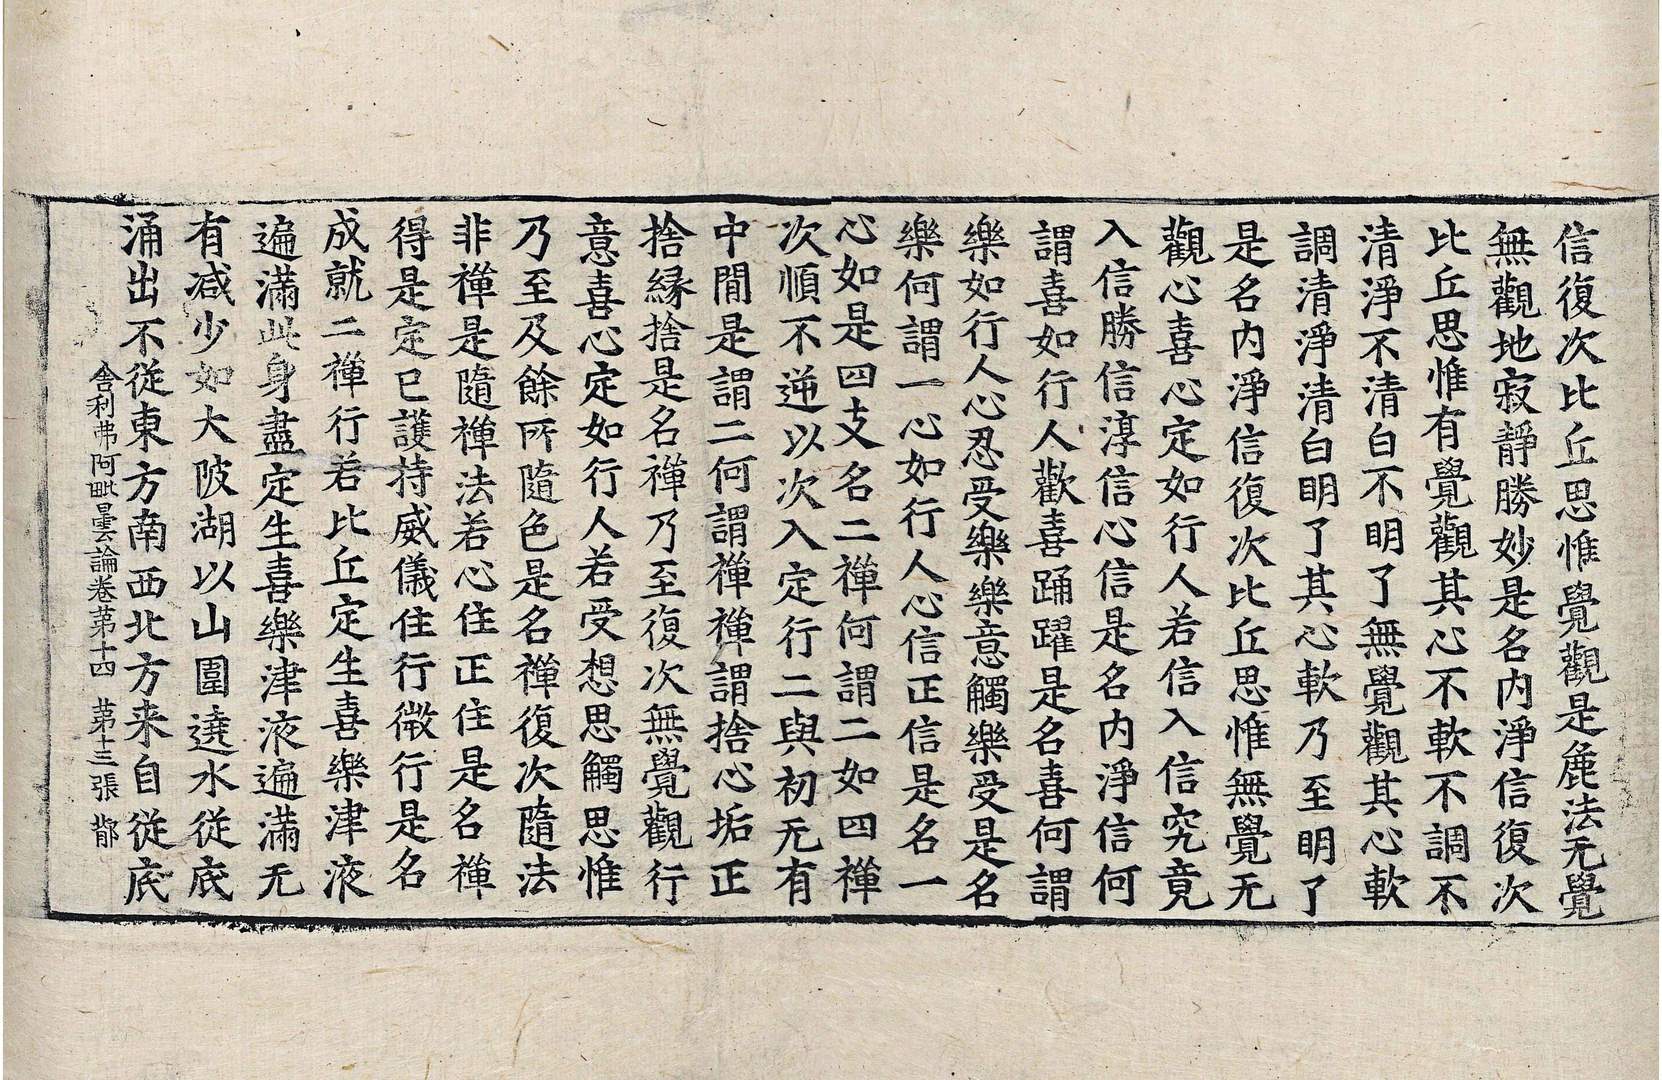 信復次比丘思惟覺觀是麁法无覺
無觀地寂靜勝妙是名内淨信復次
比丘思惟有覺觀其心不軟不調不
清淨不清白不明了無覺觀其心軟
調清淨清白明了其心軟乃至明了
是名内淨信復次比丘思惟無覺无
觀心喜心定如行人若信入信究竟
入信勝信淳信心信是名内淨信何
謂喜如行人歡喜踊躍是名喜何謂
樂如行人心忍受樂樂意觸樂受是名
樂何謂一心如行人心信正信是名一
心如是四支名二禪何謂二如四禪
次順不逆以次入定行二與初无有
中間是謂二何謂禪禪謂捨心垢正
捨緣捨是名禪乃至復次無覺觀行
意喜心定如行人若受想思觸思惟
乃至及餘所隨色是名禪復次隨法
非禪是隨禪法若心住正住是名禪
得是定已護持威儀住行微行是名
成就二禪行若比丘定生喜樂津液
遍滿此身盡定生喜樂津液遍滿无
有减少如大陂湖以山圍遶水從底
涌出不從東方南西北方来自從底
舍利弗阿毗曇論卷苐十四 苐十三張 鄁